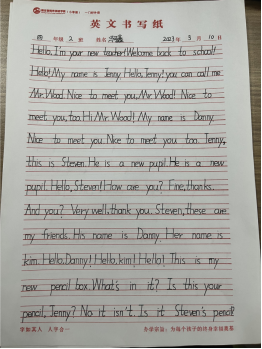 英文书写纸
四 年级 2 班 姓名 2023 年 3 月 10 日
Hello, I'm your new teacher! Welcome back to school!
Hello! My name is Jenny. Hello, Jenny! you can call me
Mr. Wood. Nice to meet you, Mr. Wood! Nice to
meet you, too. Hi Mr. Wood! My name is Danny.
Nice to meet you. Nice to meet you too. Jenny,
this is Steven. He is a new pupil. He is a new
pupil. Hello, Steven! How are you? Fine, thanks.
And you? Very well, thank you. Steven, these are
my friends. His name is Danny. Her name is
kim. Hello, Danny! Hello, kim! Hello! This is my
new pencil box. What's in it? Is this your
pencil, Jenny? No it isn't. Is it Steven's pencil?